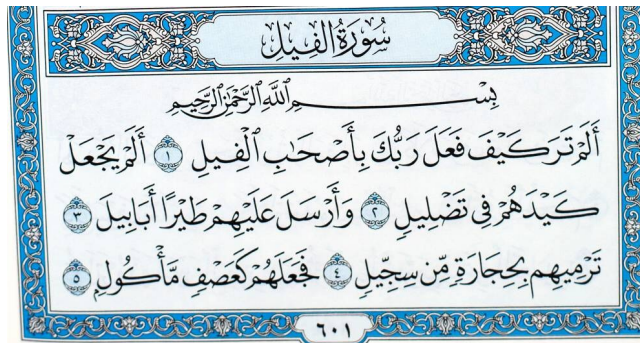 سُورَةُ الْفِيلِ
بِسْمِ اللَّهِ الرَّحْمَٰنِ الرَّحِيمِ
أَلَمْ تَرَ كَيْفَ فَعَلَ رَبُّكَ بِأَصْحَٰبِ الْفِيلِ ١ أَلَمْ يَجْعَلْ
كَيْدَهُمْ فِى تَضْلِيلٍ ٢ وَأَرْسَلَ عَلَيْهِمْ طَيْرًا أَبَابِيلَ ٣
تَرْمِيهِم بِحِجَارَةٍ مِّن سِجِّيلٍ ٤ فَجَعَلَهُمْ كَعَصْفٍ مَّأْكُولٍ ٥
٦٠١